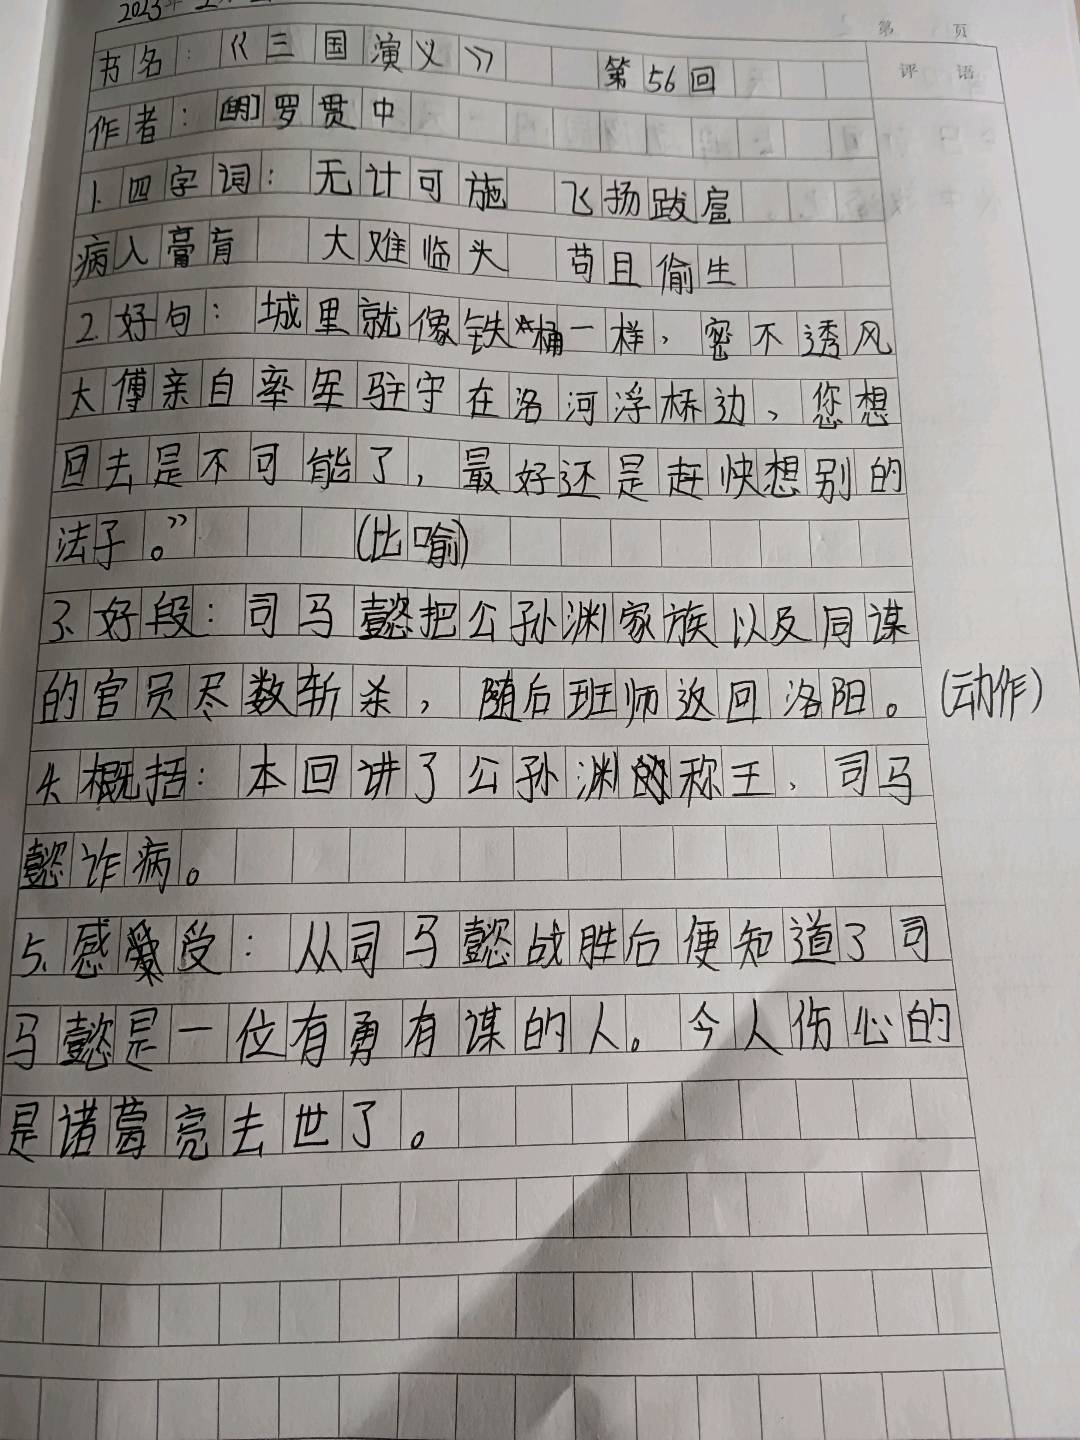 2023年
第 页
书名：《三国演义》 第56回
评 语
作者：[明]罗贯中
1.四字词：无计可施 飞扬跋扈
病入膏肓 大难临头 苟且偷生
2.好句：城里就像铁桶一样，密不透风
太傅亲自率军驻守在洛河浮桥边，您想
回去是不可能了，最好还是赶快想别的
法子。” (比喻)
3.好段：司马懿把公孙渊家族以及同谋
的官员尽数斩杀，随后班师返回洛阳。(动作)
4.概括：本回讲了公孙渊称王、司马
懿诈病。
5.感受：从司马懿战胜后便知道了司
马懿是一位有勇有谋的人。今人伤心的
是诸葛亮去世了。